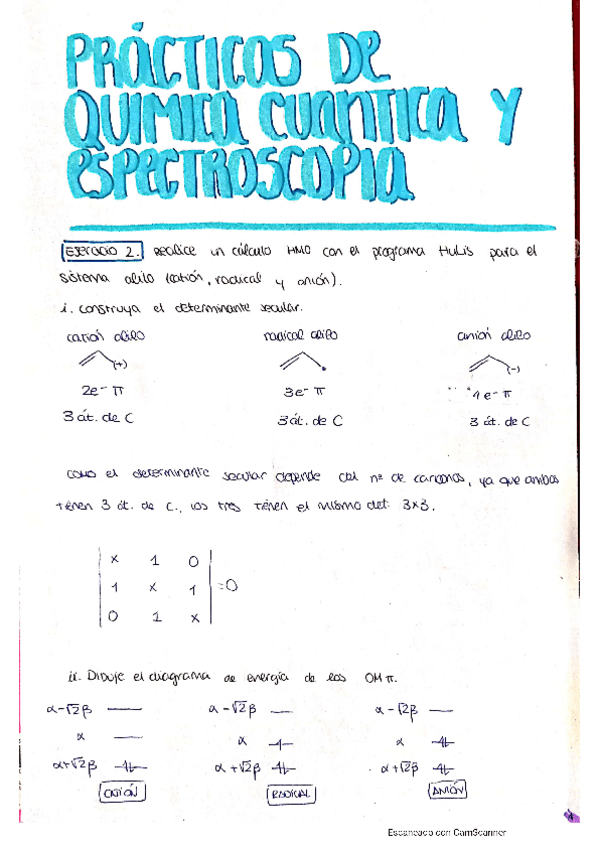 PRÁCTICOS DE
QUIMICA CUANTICA Y
ESPECTROSCOPIA
Ejercicio 2. Realice un cálculo HMO con el programa HuLis para el
sistema alilo (catión, radical y anión).
i. Construya el determinante secular.
catión alilo radical alilo anión alilo
(+) • (-)
2e- π 3e- π 4e- π
3 át. de C 3 át. de C 3 át. de C
Como el determinante secular depende del nº de carbonos, ya que ambos
tienen 3 át. de C., los tres tienen el mismo det. 3x3.
x 1 0
1 x 1 =0
0 1 x
ii. Dibuje el diagrama de energía de los OM π.
α-√2β α-√2β α-√2β
α α α
α+√2β α+√2β α+√2β
CATIÓN RADICAL ANIÓN
Escaneado con CamScanner